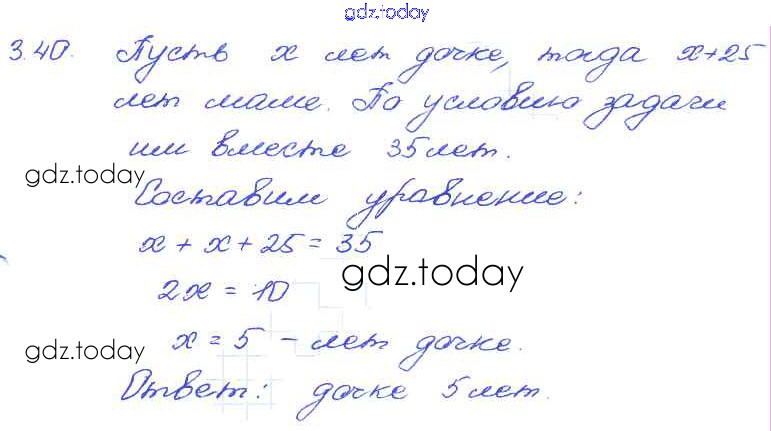 gdz.today
3.40. Пусть x лет дочке, тогда x+25
лет маме. По условию задачи
им вместе 35 лет.
gdz.today
Составим уравнение:
x + x + 25 = 35
gdz.today
2x = 10
gdz.today
x = 5 - лет дочке.
Ответ: дочке 5 лет.